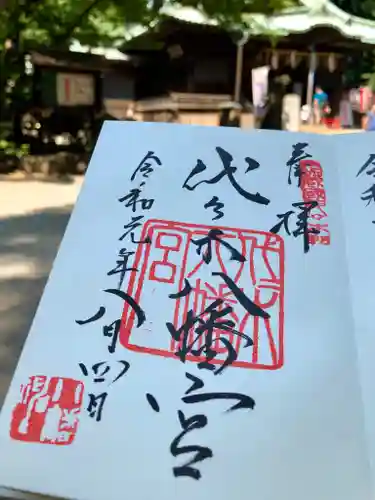 奉拝
代々木八幡宮
令和元年八月四日
代々木八幡宮
令和